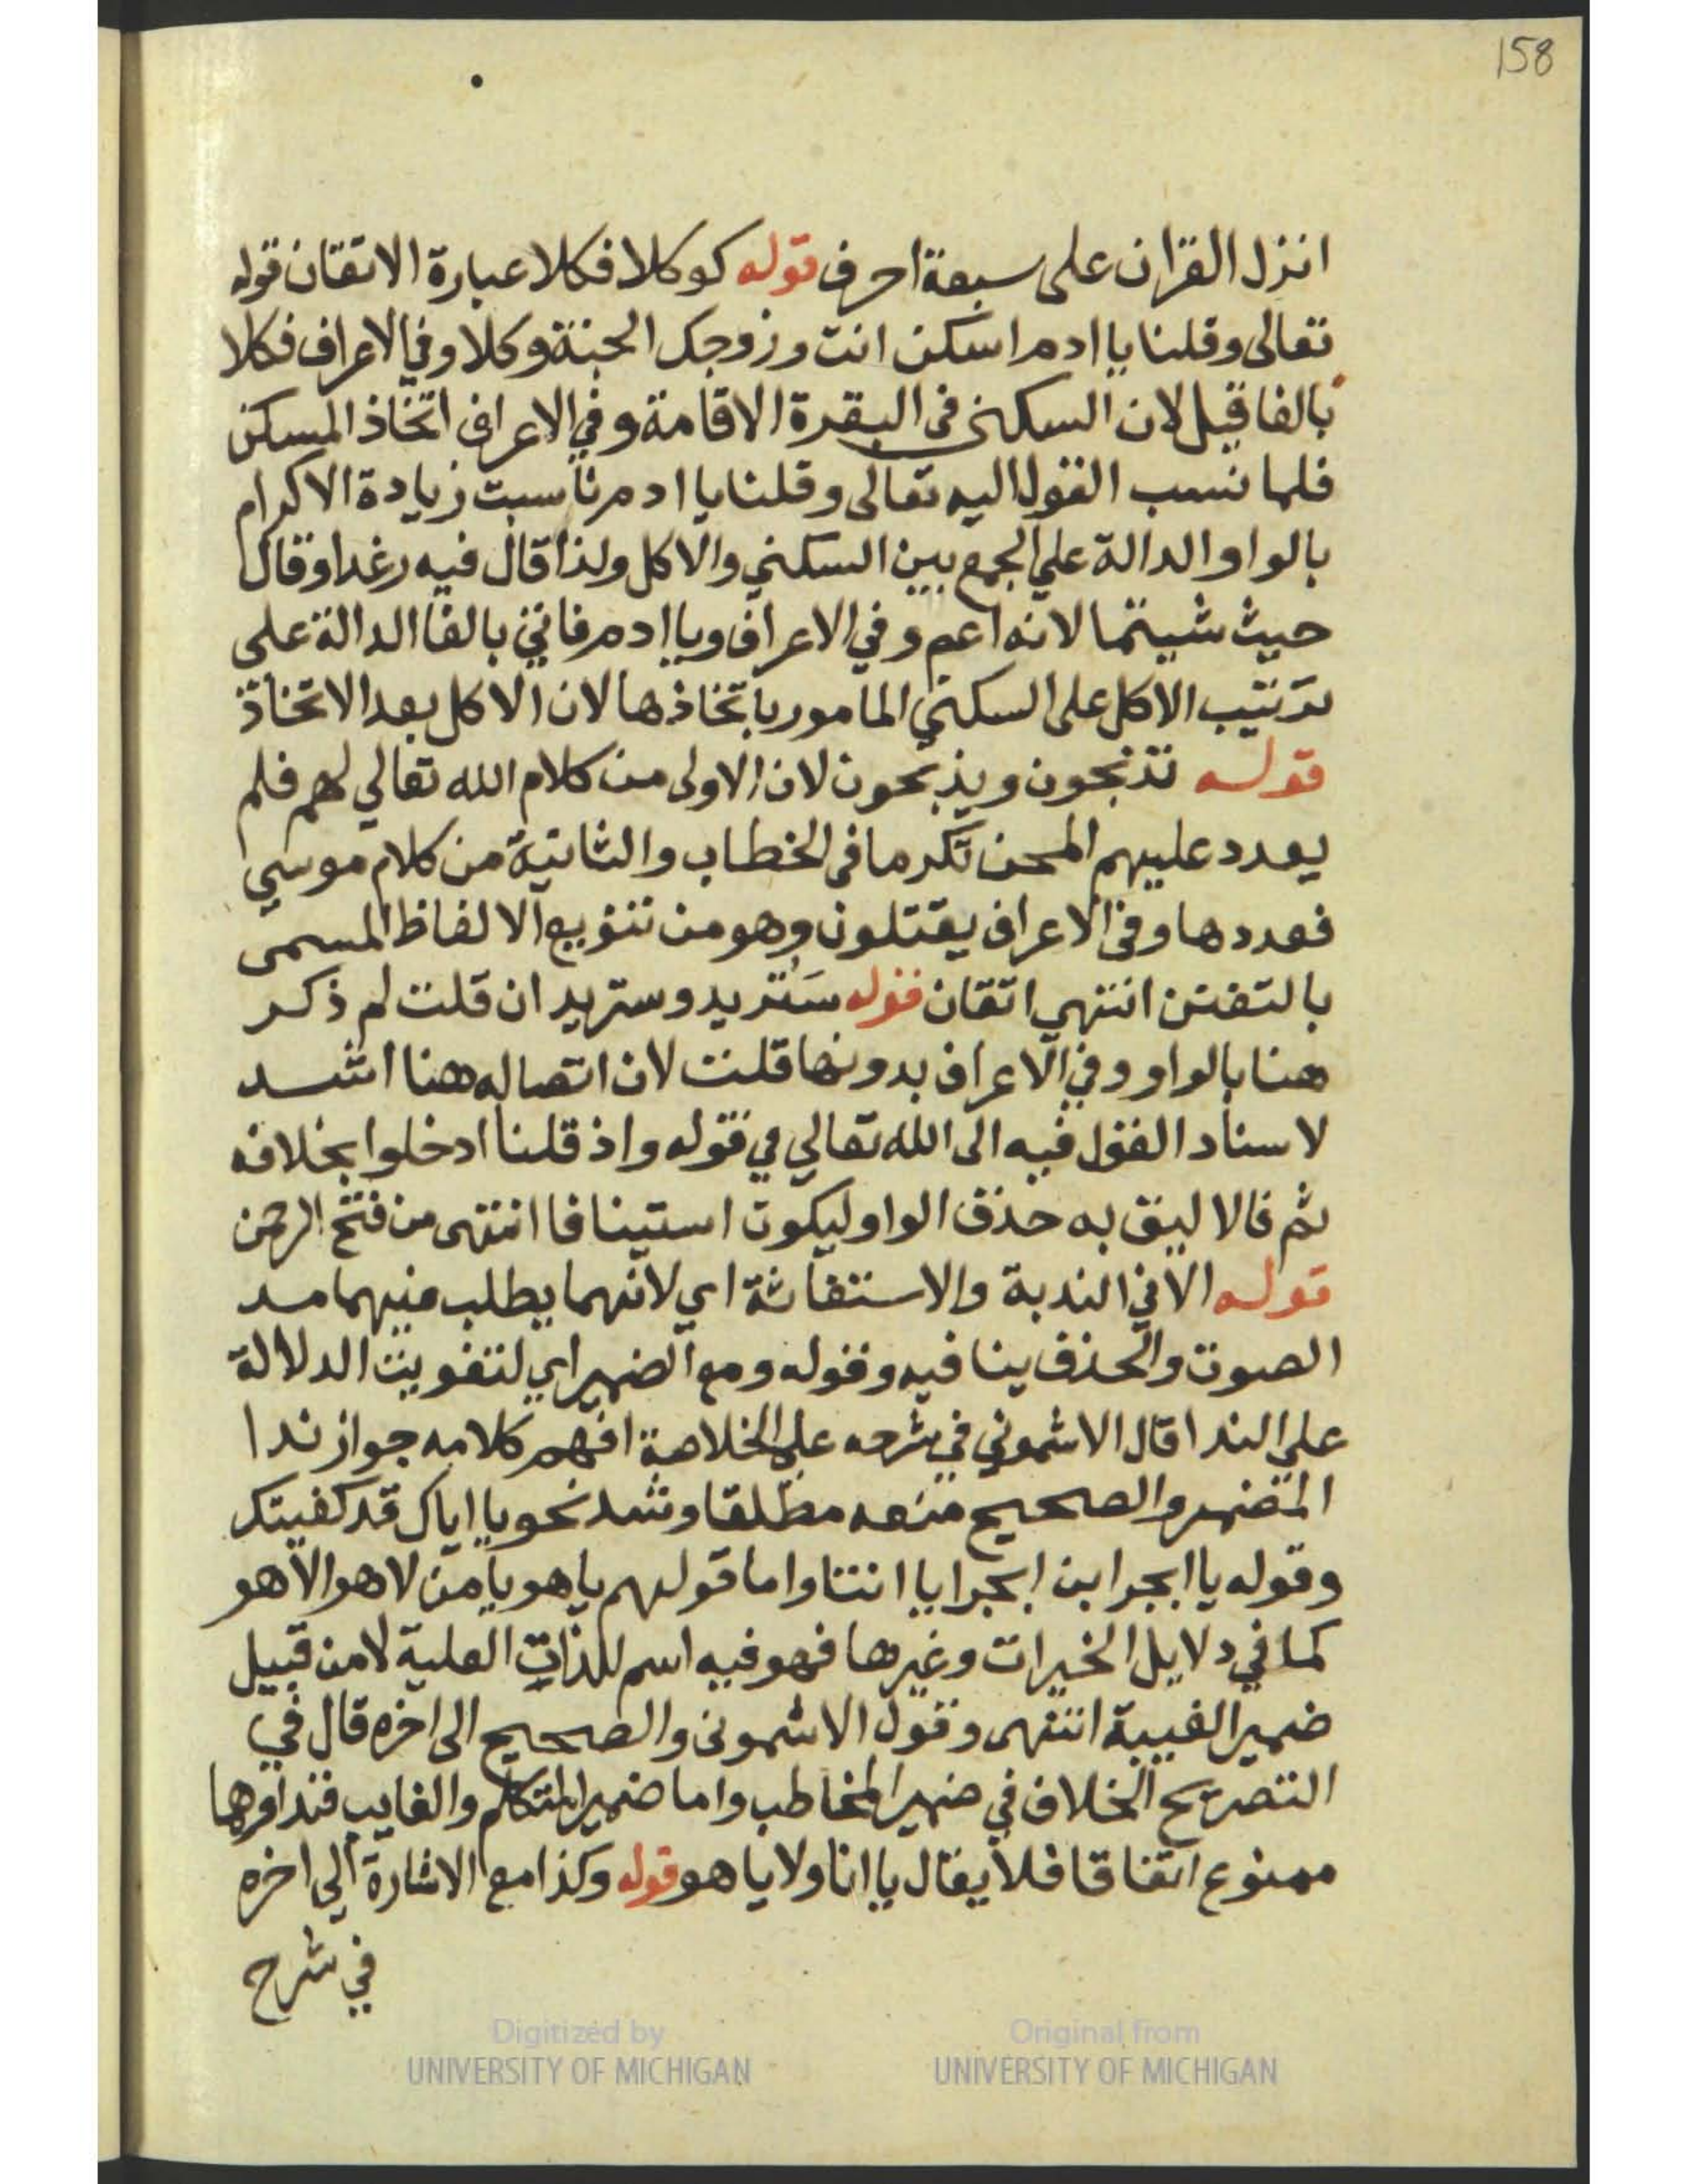 158
انزل القران على سبعة احرف قوله كوكلا فكلا عبارة الاتقان قوله
تعالى وقلنا يا ادم اسكن انت وزوجك الجنة وكلا وفي الاعراف فكلا
بالفا قيل لان السكنى في البقرة الاقامة وفي الاعراف اتخاذ المسكن
فلما نسب القول اليه تعالى وقلنا يا ادم ناسبت زيادة الاكرام
بالواو الدالة علي الجمع بين السكني والاكل ولذا قال فيه رغدا وقال
حيث شيتما لانه اعم وفي الاعراف ويا ادم فاتي بالفا الدالة على
ترتيب الاكل على السكني المامور باتخاذها لان الاكل بعد الاتخاذ
قوله تذبحون ويذبحون لان الاولى من كلام الله تعالي لهم فلم
يعدد عليهم المحن تكرما في الخطاب والثانية من كلام موسي
فعددها وفي الاعراف يقتلون وهو من تنويع الالفاظ المسمى
بالتفنن انتهي اتقان قوله سنزيد وسنزيد ان قلت لم ذكر
هنا بالواو وفي الاعراف بدونها قلت لان اتصاله هنا اشد
لاسناد القول فيه الى الله تعالي في قوله واذ قلنا ادخلوا بخلافه
ثم فالا ليق به حذف الواو ليكون استينافا انتهى من فتح الرحمن
قوله الا في الندبة والاستغاثة اي لانهما يطلب فيهما مد
الصوت والحذف ينافيه وقوله ومع الضمير اي لتفويت الدلالة
علي الندا قال الاشموني في شرحه علي الخلاصة افهم كلامه جواز ندا
المضمر والصحيح منعه مطلقا وشذ نحو يا اياك قد كفيتك
وقوله يا ابجر ابن ابجر يا انتا واما قولهم يا هو يا من لا هو الا هو
كما في دلايل الخيرات وغيرها فهو فيه اسم للذات العلية لا من قبيل
ضمير الغيبة انتهى وقول الاشمونى والصحيح الى اخره قال في
التصريح الخلاف في ضمير المخاطب واما ضمير المتكلم والغايب فنداوهما
ممنوع اتفاقا فلا يقال يا انا ولا يا هو قوله وكذا مع الاشارة الى اخره
في شرح
Digitized by
UNIVERSITY OF MICHIGAN
Original from
UNIVERSITY OF MICHIGAN